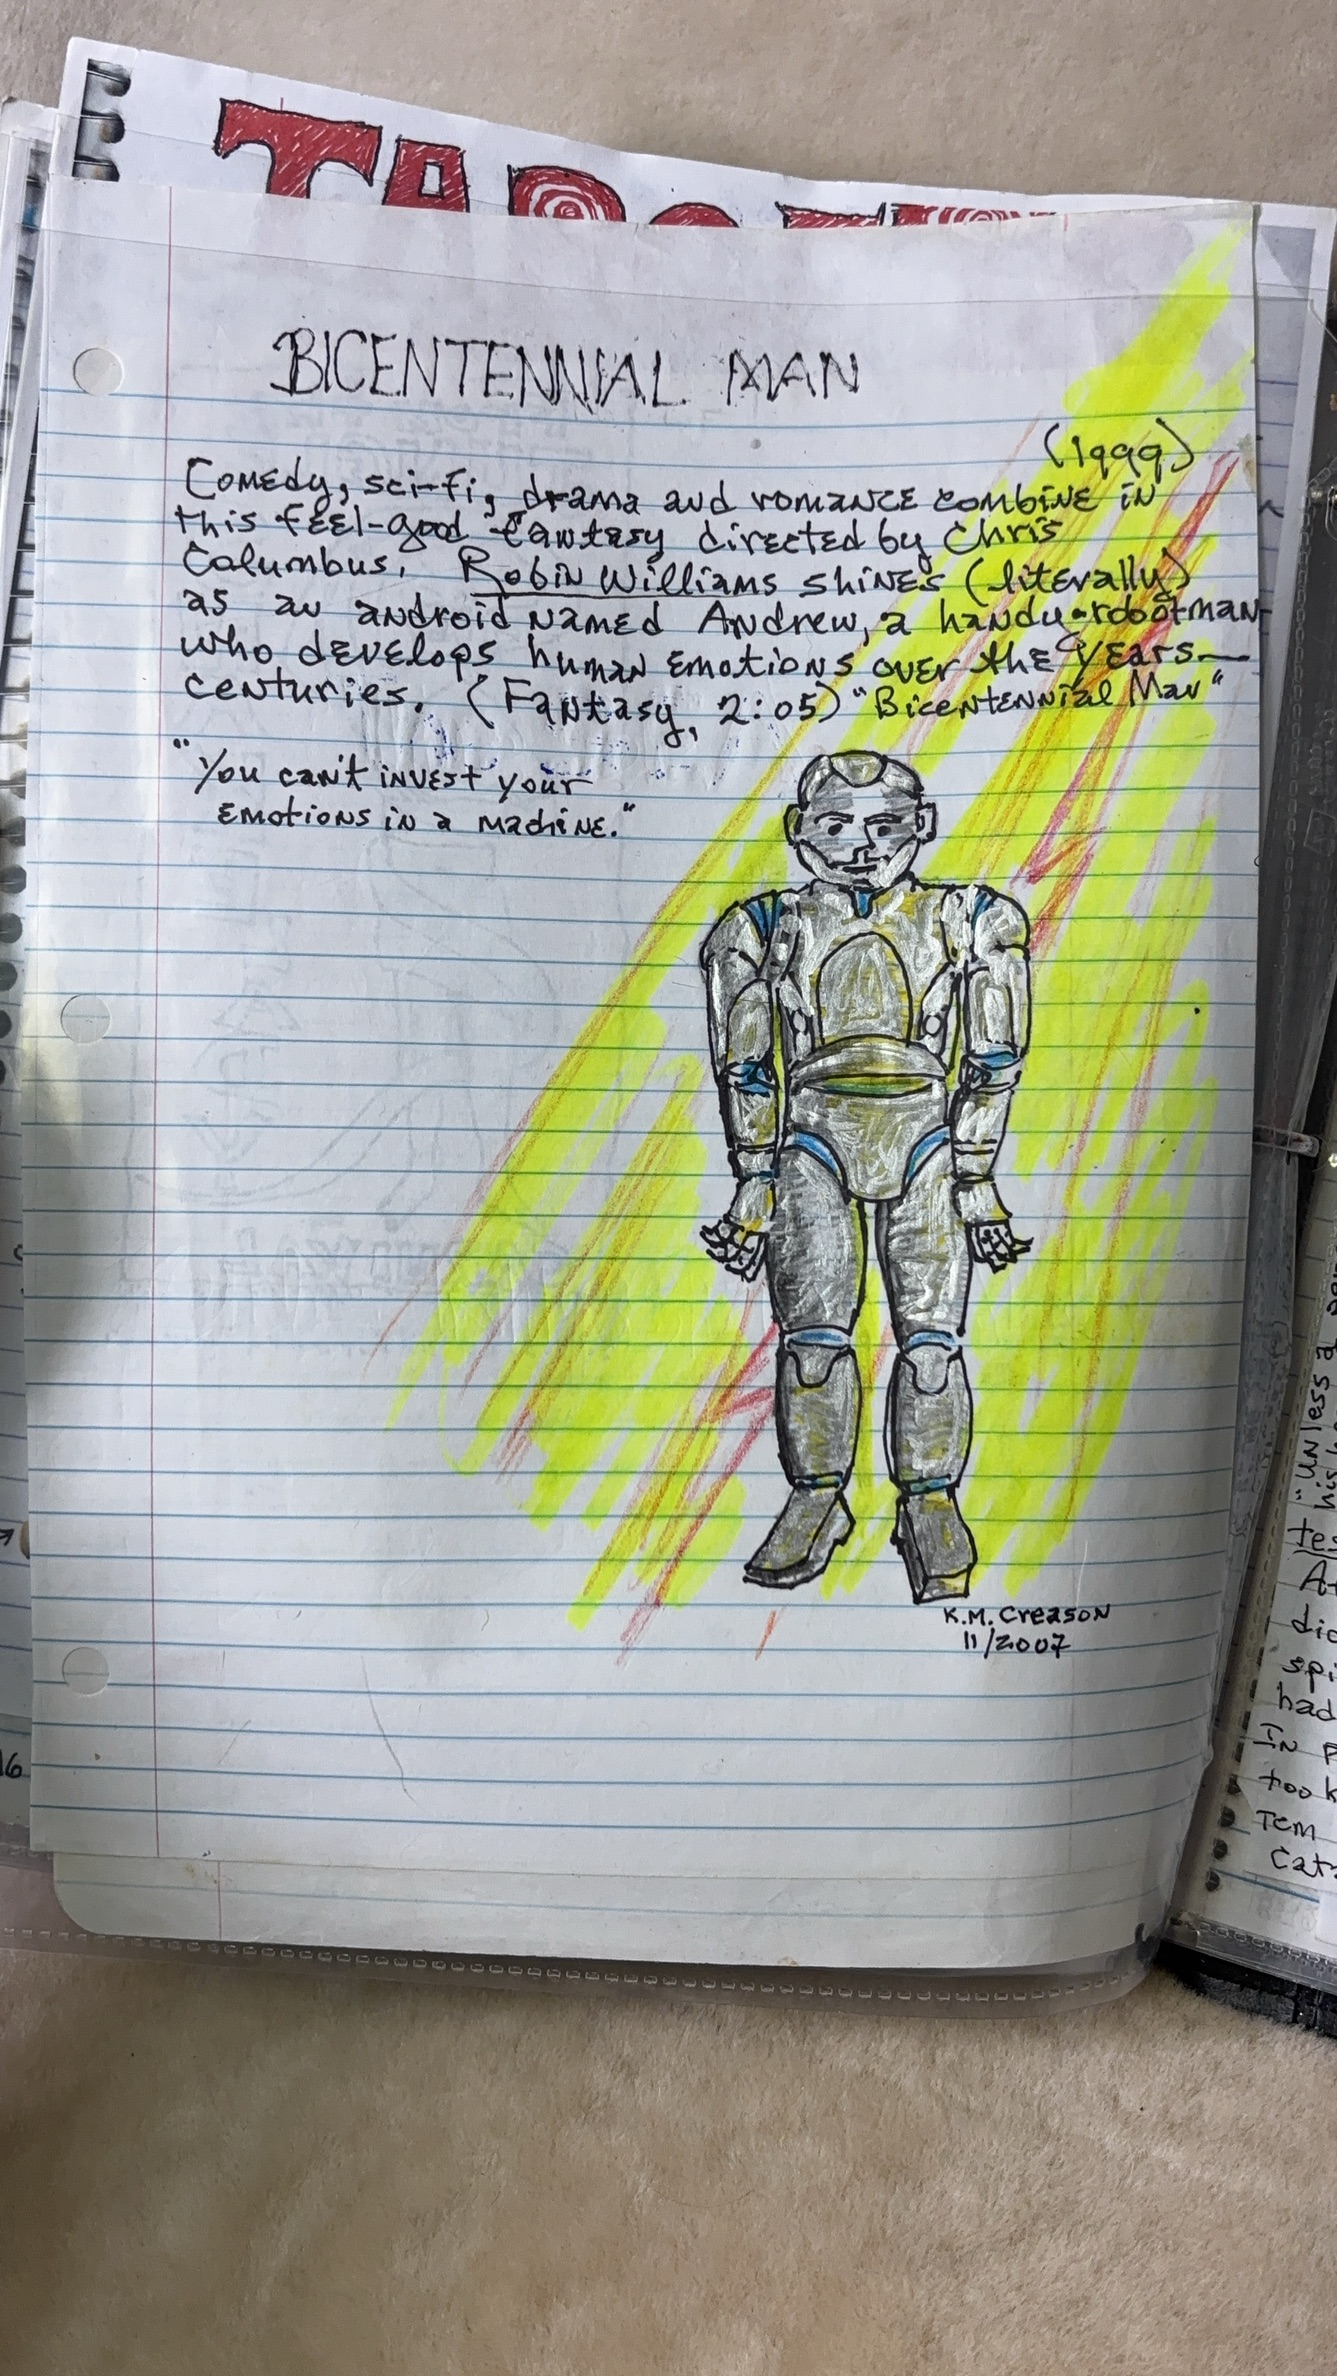 BICENTENNIAL MAN
(1999)
Comedy, sci-fi, drama and romance combine in
this feel-good fantasy directed by Chris
Columbus. Robin Williams shines (literally)
as an android named Andrew, a handy-robot-man
who develops human emotions over the years—
centuries. (Fantasy, 2:05) "Bicentennial Man"
"You can't invest your
emotions in a machine."
K.M. Creason
11/2007
16
"Unless a
his
Tcm
had
took